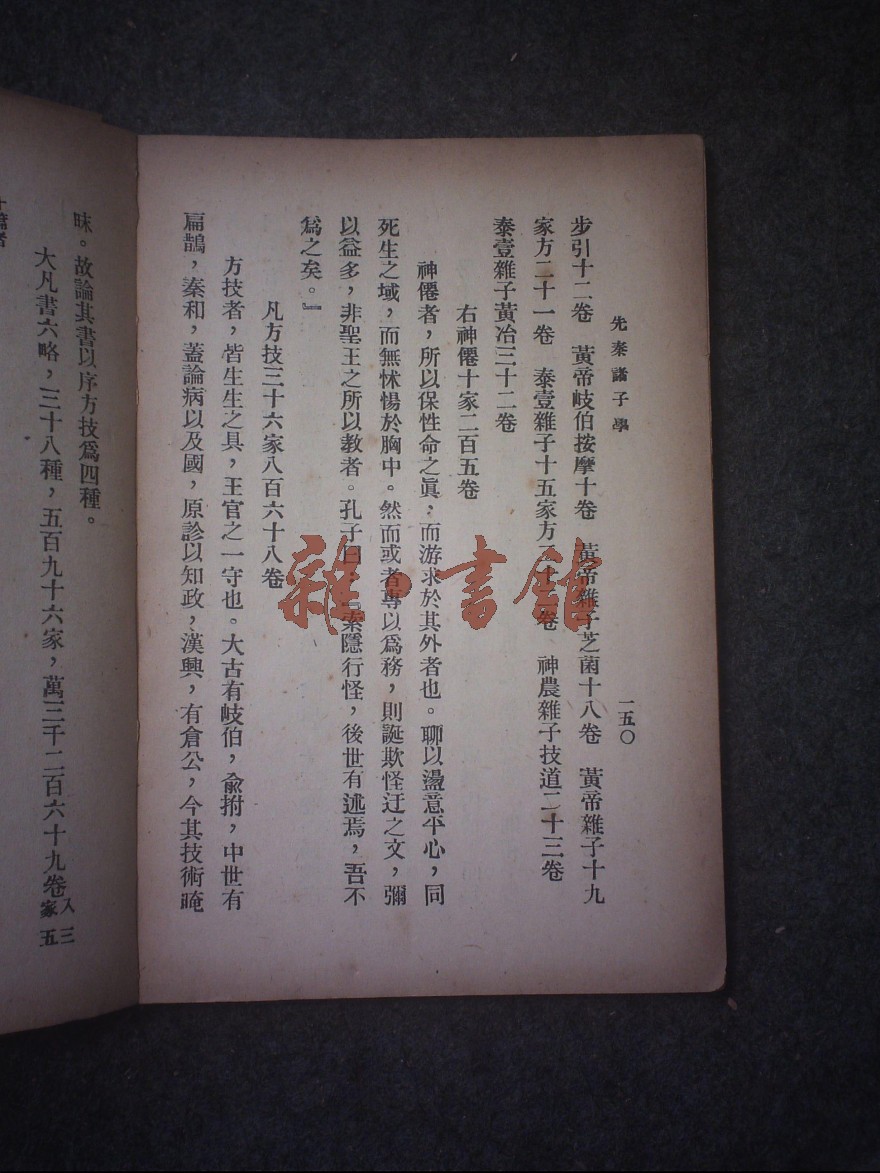 先秦諸子學
一五〇
步引十二卷　黃帝岐伯按摩十卷　黃帝雜子芝菌十八卷　黃帝雜子十九
家方二十一卷　泰壹雜子十五家方二十二卷　神農雜子技道二十三卷
泰壹雜子黃冶三十二卷
右神僊十家二百五卷
神僊者，所以保性命之眞，而游求於其外者也。聊以盪意平心，同
死生之域，而無怵惕於胸中。然而或者專以爲務，則誕欺怪迂之文，彌
以益多，非聖王之所以教者。孔子曰：『索隱行怪，後世有述焉，吾不
爲之矣。』
凡方技三十六家八百六十八卷
方技者，皆生生之具，王官之一守也。大古有岐伯，俞拊，中世有
扁鵲，秦和，蓋論病以及國，原診以知政，漢興，有倉公，今其技術晻
昧。故論其書以序方技爲四種。
大凡書六略，三十八種，五百九十六家，萬三千二百六十九卷入三
家五
雜·書館